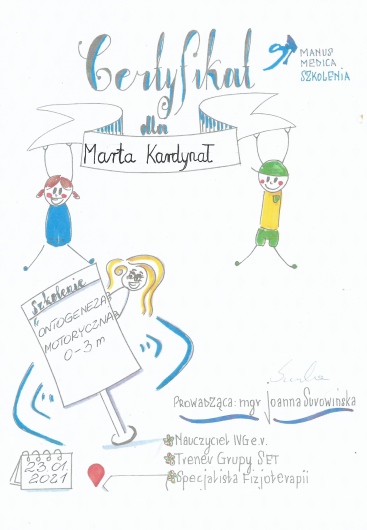 Certyfikat
MANUS
MEDICA
SZKOLENIA
dla
Marta Kardynał
Szkolenie
"ONTOGENEZA
MOTORYCZNA
0-3 m
Prowadząca: mgr Joanna Surowińska
Nauczyciel IVG e.v.
Trener Grupy SET
Specjalista Fizjoterapii
23.01.
2021